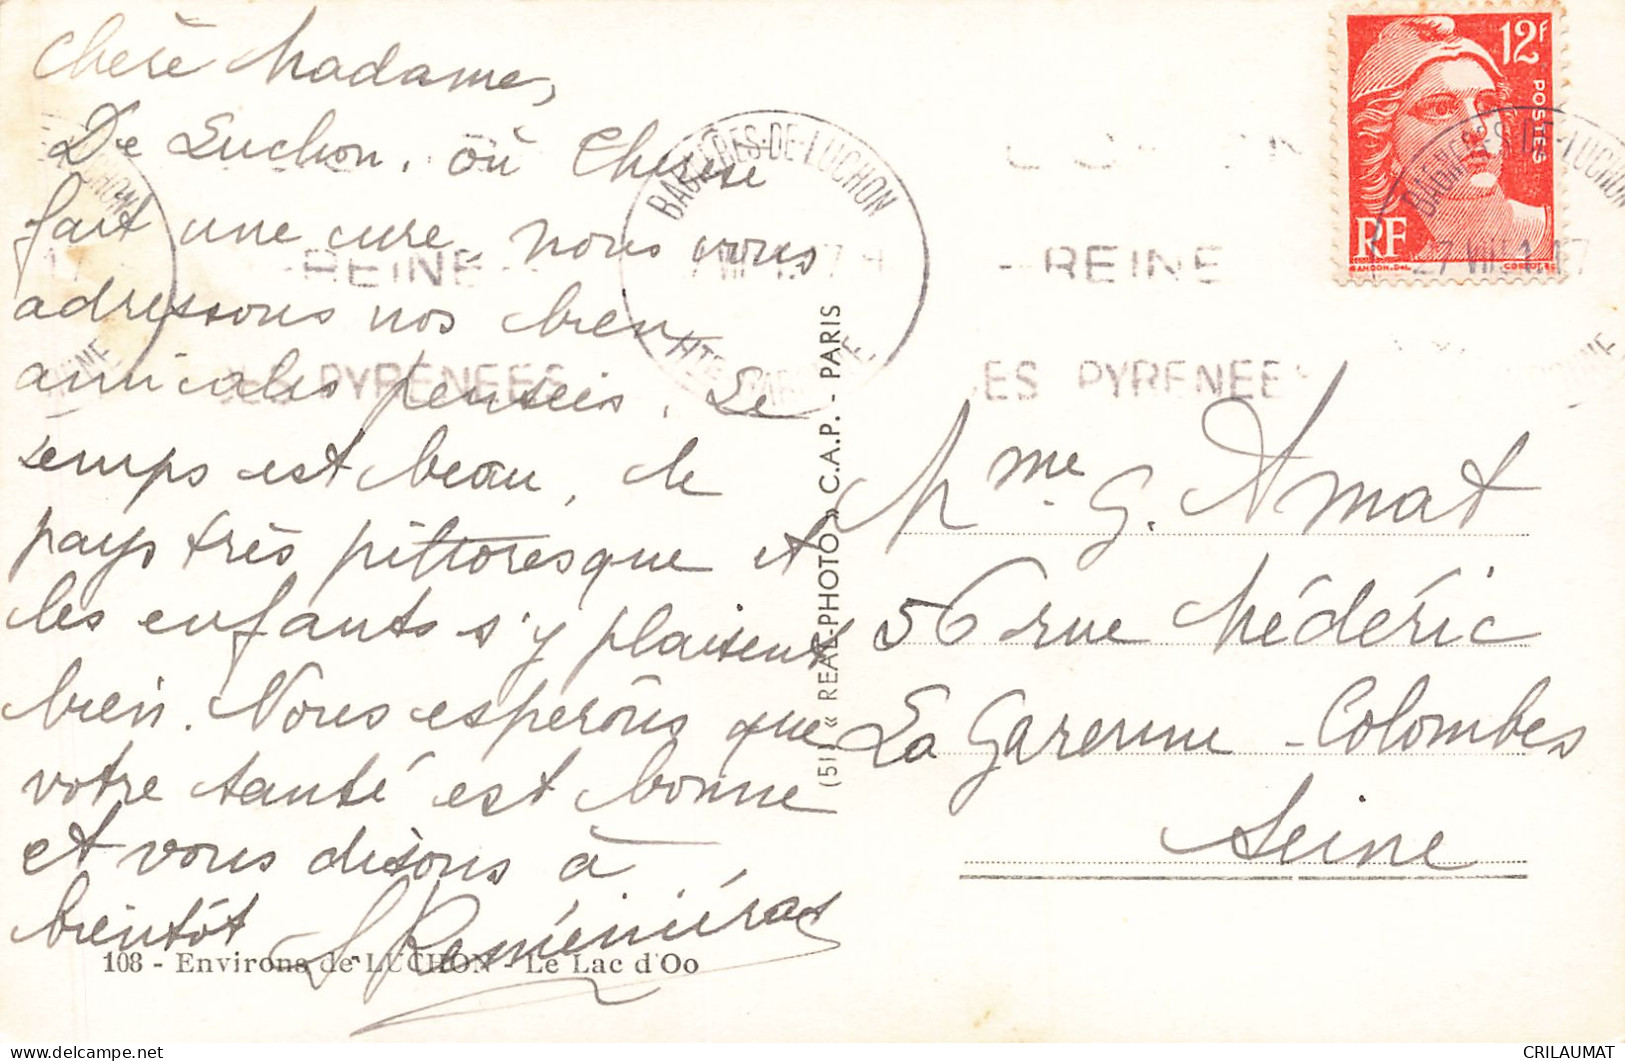 Chère Madame,
De Luchon, où Thérèse
fait une cure, nous vous
adressons nos bien
amicales pensées. Le
temps est beau, le
pays très pittoresque et
les enfants s'y plaisent
bien. Nous espérons que
votre santé est bonne
et vous disons à
bientôt
108 - Environs de LUCHON - Le Lac d'Oo
(51) « REAL-PHOTO » C.A.P. - PARIS
BAGNÈRES-DE-LUCHON
HTE GARONNE
REINE
DES PYRENEES
12f
POSTES
RF
GANDON
BAGNÈRES-DE-LUCHON
- REINE
PYRENEES
Mme G. Amat
56 rue Médéric
La Garenne-Colombes
Seine
CRILAUMAT